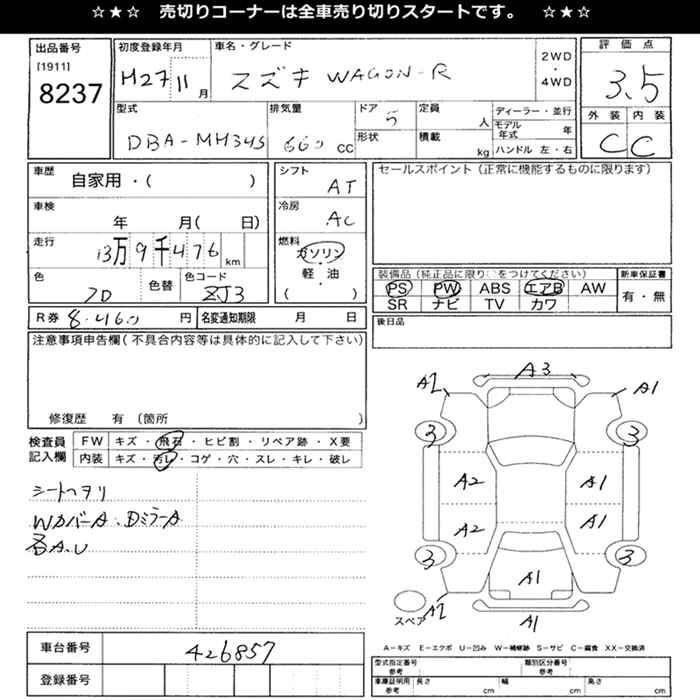 ☆★☆ 売切りコーナーは全車売り切りスタートです。 ☆★☆
出品番号 初度登録年月 車名・グレード 2WD ・ 4WD 評価点
[1911]
8237 H27 11月 スズキ WAGON-R 3.5
型式 排気量 ドア 5 定員 人 ディーラー・並行 外装 内装
DBA-MH34S 660 CC 形状 積載 kg モデル年式 年 C C
ハンドル 左・右
車歴 自家用・( ) シフト AT セールスポイント(正常に機能するものに限ります)
車検 年 月( 日) 冷房 AC
走行 13万9千476km 燃料 ガソリン・軽・油 ( )
装備品(純正品に限り○をつけてください) 新車保証書
色 色替 色コード ZJ3 PS PW ABS エアB AW 有・無
SR ナビ TV カワ
R券 8.460円 名変通知期限 月 日 後日品
注意事項申告欄(不具合内容等は具体的に記入して下さい)
修復歴 有(箇所
検査員記入欄 FW キズ・飛石・ヒビ割・リペア跡・X要
内装 キズ・汚レ・コゲ・穴・スレ・キレ・破レ
シートヘタリ
WカバーA.DミラーA
A.U
A2 A3 A1
3 3
A2 A1
A2 A1
3 3
A1
スペア A2 A1
A-キズ E-エクボ U-凹み W-補修跡 S-サビ C-腐食 XX-交換済
車台番号 426857
登録番号
型式指定番号 参考 類別区分番号 参考
車庫証明用 参考 長さ cm 幅 cm 高さ cm